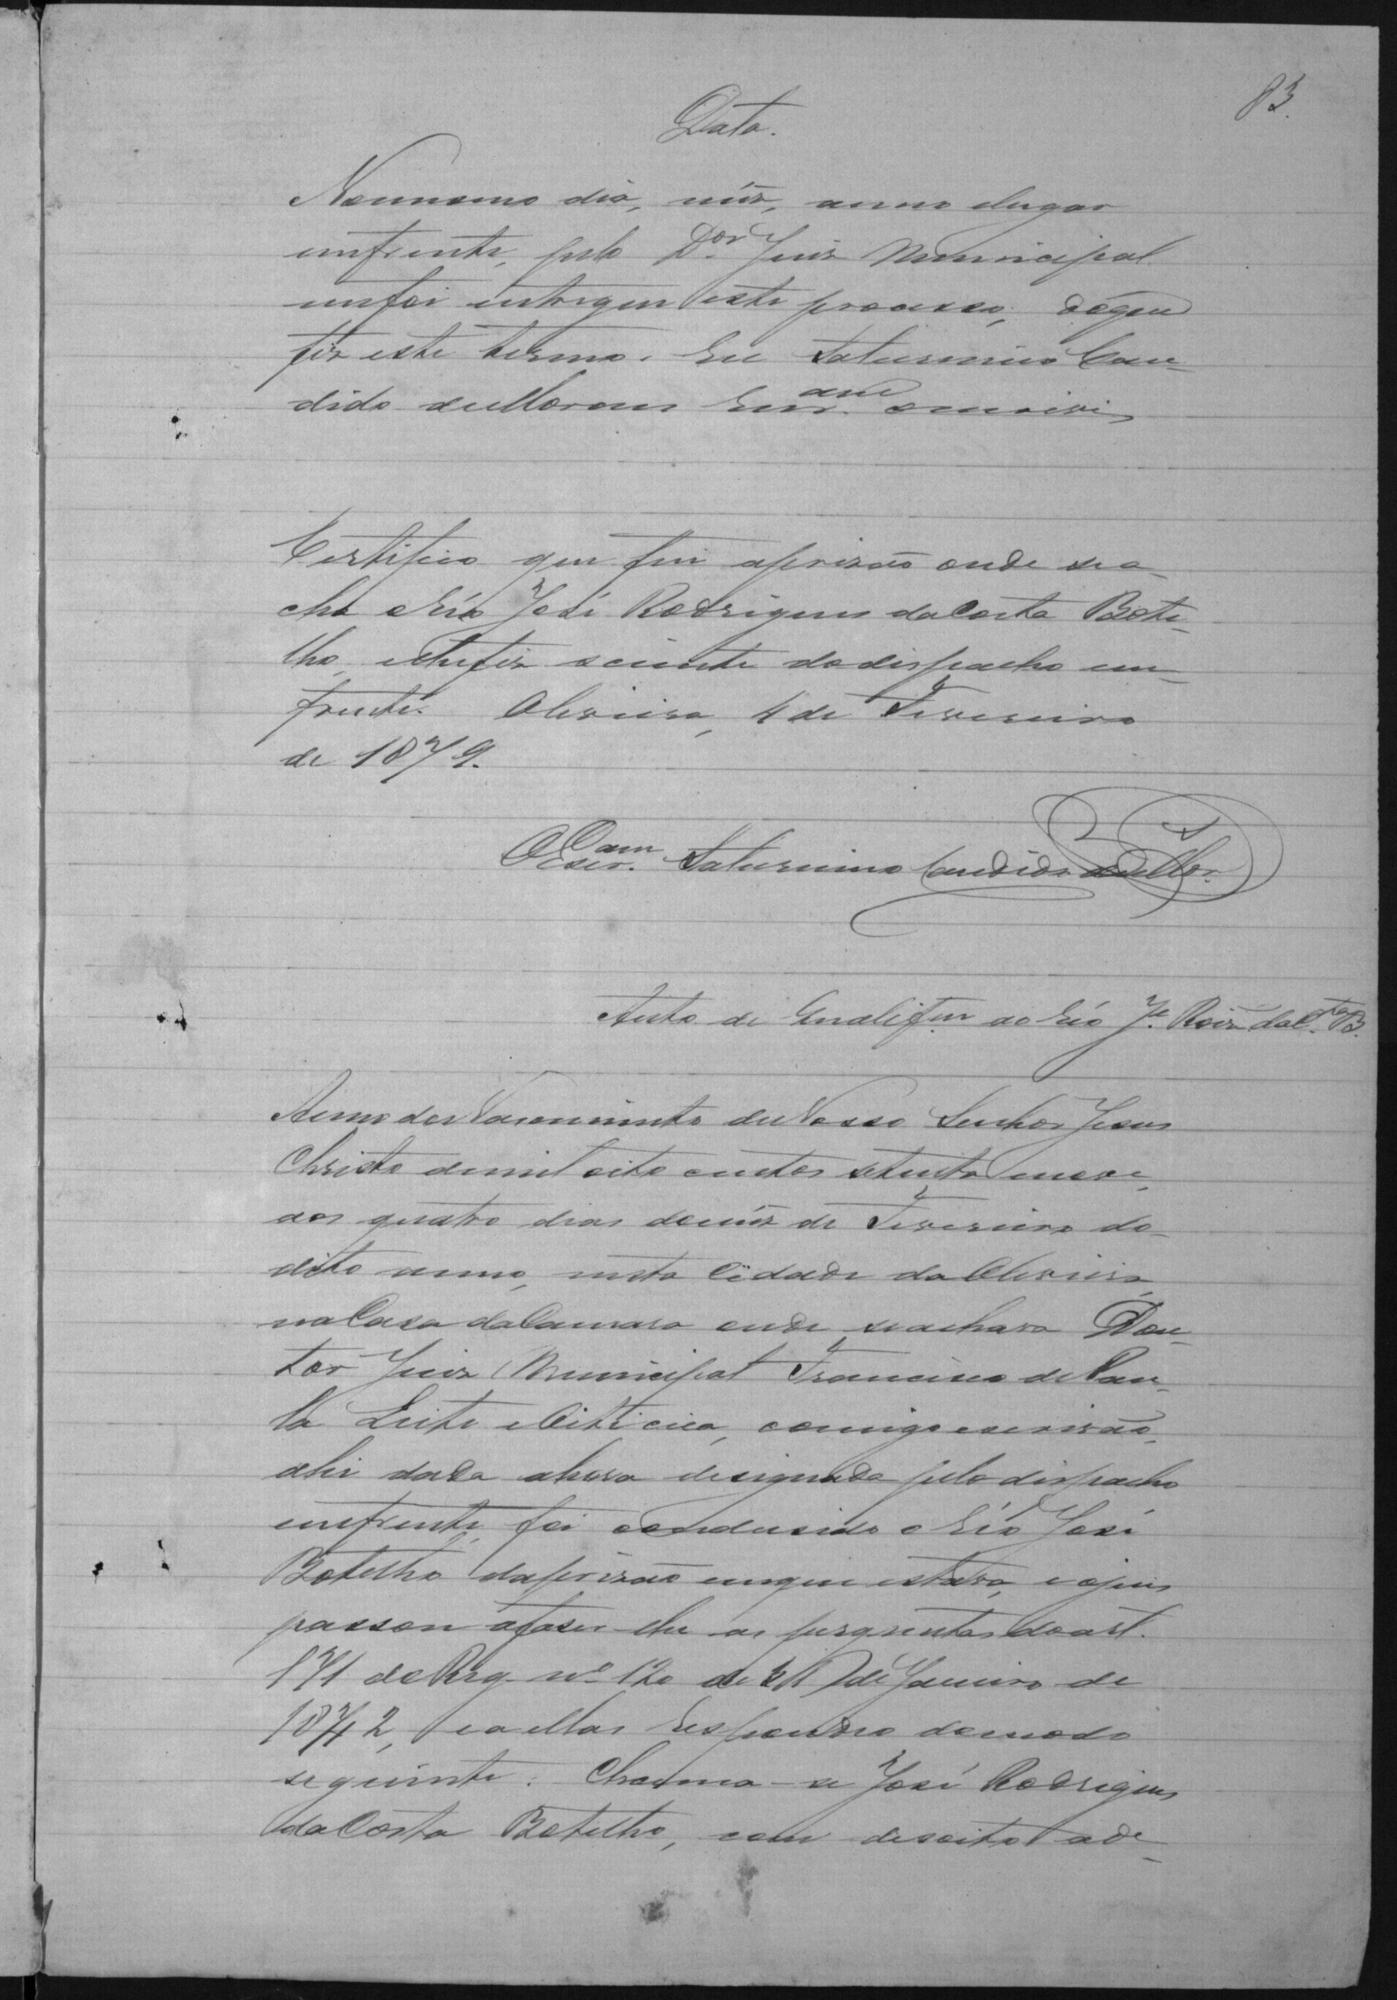 83.
Data.
No mesmo dia, mez, anno e lugar
emfrente, pelo Dor. Juiz Municipal
me foi entregue este processo; do que
fiz este termo. Eu Saturnino Can-
dido de Moraes Escr.am o escrivi
Certifico que fui a prizão onde se a-
cha o Réo José Rodrigues da Costa Bote-
lho, e lhe fiz sciente do dispacho em-
frente. Oliveira, 4 de Fevereiro
de 1879.
O Escr.am Saturnino Candido de Mor.
Auto de Qualif.am ao Réo Je. Roiz da C.ta B.
Anno do Nascimento de Nosso Senhor Jesus
Christo de mil oito centos setenta e nove,
aos quatro dias do mez de Fevereiro do
dito anno, nesta Cidade da Oliveira
na Casa da Camara onde se achava o Dou-
tor Juiz Municipal Francisco de Pau-
la Leite e Oiticica, comigo escrivão,
ahi dada a hora designada pelo dispacho
emfrente, foi condusido o Réo José
Botelho da prizão em que estava, e o juis
passou a faser-lhe as perguntas do art.
171 do Reg. nº 120 de 31 de Janeiro de
1842, e a ellas respondeo do modo
seguinte: Chama-se José Rodrigues
da Costa Botelho, com desoito a de-